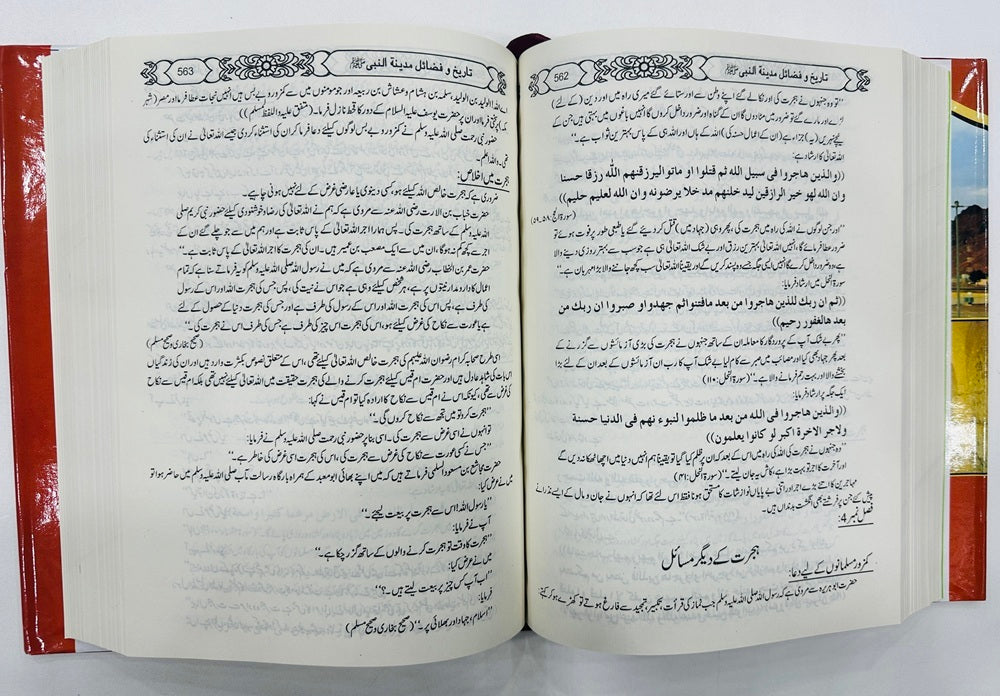 562
تاریخ و فضائل مدینة النبی ﷺ
”تو وہ جنہوں نے ہجرت کی اور نکالے گئے اپنے وطن سے اور ستائے گئے میری راہ میں اور دین (کے لئے)
لڑے اور مارے گئے تو ضرور میں مٹادوں گا ان کے گناہ اور ضرور داخل کروں گا انہیں باغوں میں بہتی ہیں جن کے
نیچے نہریں (یہ) جزاء ہے (ان کے اعمالِ حسنہ کی) اللہ کے ہاں اور اللہ ہی کے پاس بہترین ثواب ہے۔“
اللہ تعالیٰ کا ارشاد ہے:
((والذين هاجروا فى سبيل الله ثم قتلوا او ماتوا ليرزقنهم الله رزقا حسنا
وان الله لهو خير الرازقين ليد خلنهم مد خلا يرضونه وان الله لعليم حليم))
(سورۃ الحج:۵۸۔۵۹)
”اور جن لوگوں نے اللہ کی راہ میں ہجرت کی، پھر وہی (جہاد میں) قتل کر دیئے گئے یا طبعی طور پر فوت ہوئے تو
ضرور عطا فرمائے گا، انہیں اللہ تعالیٰ بہترین رزق اور بے شک اللہ تعالیٰ ہی ہے جو سب سے بہتر روزی دینے والا
ہے، وہ ضرور داخل کرے گا انہیں ایسی جگہ جسے وہ پسند کریں گے اور یقیناً اللہ تعالیٰ سب کچھ جاننے والا بڑا مہربان ہے۔“
سورۃ النحل میں ارشاد فرمایا:
((ثم ان ربك للذين هاجروا من بعد مافتنوا ثم جهدوا و صبروا ان ربك من
بعد هالغفور رحيم))
”پھر بے شک آپ کے پروردگار کا معاملہ ان کے ساتھ جنہوں نے ہجرت کی بڑی آزمائشوں سے گزرنے کے
بعد پھر جہاد بھی کیا اور مصائب میں صبر سے کام لیا بے شک آپ کا رب ان آزمائشوں کے بعد ان کے لئے بڑا
بخشنے والا اور بہت رحم فرمانے والا ہے۔“ (سورۃ النحل:۱۱۰)
ایک جگہ پر ارشاد فرمایا:
((والذين هاجروا فى الله من بعد ما ظلموا لنبوء نهم فى الدنيا حسنة
ولاجر الاخرة اكبر لو كانوا يعلمون))
”وہ جنہوں نے ہجرت کی اللہ کی راہ میں اس کے بعد کہ ان پر ظلم کیا گیا تو یقیناً ہم انہیں دنیا میں اچھا ٹھکانہ دیں گے
اور آخرت کا اجر تو بہت بڑا ہے، کاش یہ جان لیتے۔“ (سورۃ النحل:۴۱)
مہاجرین کا اتنے بڑے اجر اور اتنی بے پایاں نوازشات کا مستحق ہونا فقط اس لئے تھا کہ انہوں نے جان و مال کے ایسے نذرانے
پیش کئے جن پر فرشتے بھی انگشت بدنداں ہیں۔
فصل نمبر 4:
ہجرت کے دیگر مسائل
کمزور مسلمانوں کے لیے دعا:
حضرت ابو ہریرہ سے مروی ہے کہ رسول اللہ صلی اللہ علیہ وسلم جب نماز کی قرأت، تکبیر، تمجید سے فارغ ہوتے تو کھڑے ہو کر کہتے
563
تاریخ و فضائل مدینة النبی ﷺ
اے اللہ! الولید بن الولید، سلمہ بن ہشام و عیاش بن ربیعہ اور جو مومنوں میں سے کمزور و بے بس ہیں انہیں نجات عطا فرما اور مصر (شہر
کہ) پر سختی فرما اور ان پر حضرت یوسف علیہ السلام کے دور کا قحط نازل فرما۔ (متفق علیہ واللفظ لمسلم))
حضور نبی رحمت صلی اللہ علیہ وسلم نے کمزور و بے بس لوگوں کیلئے دعا فرما کر ان کی استثناء کردی جیسے اللہ تعالیٰ نے ان کی استثناء کی
تھی۔ واللہ اعلم۔
ہجرت میں اخلاص:
ضروری ہے کہ ہجرت خالص اللہ کیلئے ہو، کسی دنیوی یا عارضی غرض کے لئے نہیں ہونی چاہیے۔
حضرت خباب بن الارت رضی اللہ عنہ سے مروی ہے کہ ہم نے اللہ تعالیٰ کی رضا و خوشنودی کیلئے حضور نبی کریم صلی
اللہ علیہ وسلم کے ساتھ ہجرت کی۔ پس ہمارا اجر اللہ تعالیٰ کے پاس ثابت ہے اور ہم میں سے جو چلے گئے ان کے
اجر سے کچھ کم نہ ہوگا، ان میں سے ایک مصعب بن عمیر ہیں۔ ان کی ہجرت کا اجر اللہ تعالیٰ کے پاس ثابت ہے۔“
حضرت عمر بن الخطاب رضی اللہ عنہ سے مروی ہے کہ میں نے رسول اللہ صلی اللہ علیہ وسلم کو یہ فرماتے سنا ہے کہ تمام
اعمال کا دارومدار نیتوں پر ہے، ہر شخص کیلئے وہی ہے جو اس نے نیت کی، پس جس کی ہجرت اللہ اور اس کے رسول
کی طرف ہے، پس اس کی ہجرت اللہ اور اس کے رسول کی طرف ہے اور جس کی ہجرت دنیا کے حصول کے لئے
ہے یا عورت سے نکاح کی غرض کیلئے ہو، اس کی ہجرت اس چیز کی طرف ہے جس کی طرف اس نے ہجرت کی۔“
(صحیح بخاری و صحیح مسلم)
اسی طرح صحابہ کرام رضوان اللہ علیہم کی ہجرت خالص اللہ تعالیٰ کیلئے تھی، اس کے متعلق نصوص بکثرت وارد ہیں اور ان کی زندگیاں
اس بات کی شاہد عادل ہیں اور حضرت ام قیس کیلئے ہجرت کرنے والے کی ہجرت حقیقت میں اللہ تعالیٰ کیلئے نہیں تھی بلکہ ام قیس سے نکاح
کی غرض سے تھی، کیونکہ اس نے ام قیس سے نکاح کا ارادہ کیا تو ام قیس نے کہا:
”ہجرت کرو تو میں تجھ سے نکاح کروں گی۔“
تو انہوں نے اسی غرض سے ہجرت کی۔ اسی بنا پر حضور نبی رحمت صلی اللہ علیہ وسلم نے فرمایا:
”جس نے کسی عورت سے نکاح کی غرض سے ہجرت کی، اس کی ہجرت اسی غرض کی خاطر ہے۔“
حضرت مجاشع بن مسعود السلمی فرماتے ہیں کہ میں اپنے بھائی ابو معبد کے ہمراہ بارگاہ رسالت مآب صلی اللہ علیہ وسلم میں حاضر ہوا تو
میں نے عرض کیا:
”یا رسول اللہ! اس سے ہجرت پر بیعت لیجئے۔“
آپ نے فرمایا:
”ہجرت کا وقت تو ہجرت کرنے والوں کے ساتھ گزر چکا ہے۔“
میں نے عرض کیا:
”اب آپ کس چیز پر بیعت لیتے ہیں۔؟“
فرمایا:
”اسلام، جہاد اور بھلائی پر۔“ (صحیح بخاری و صحیح مسلم)